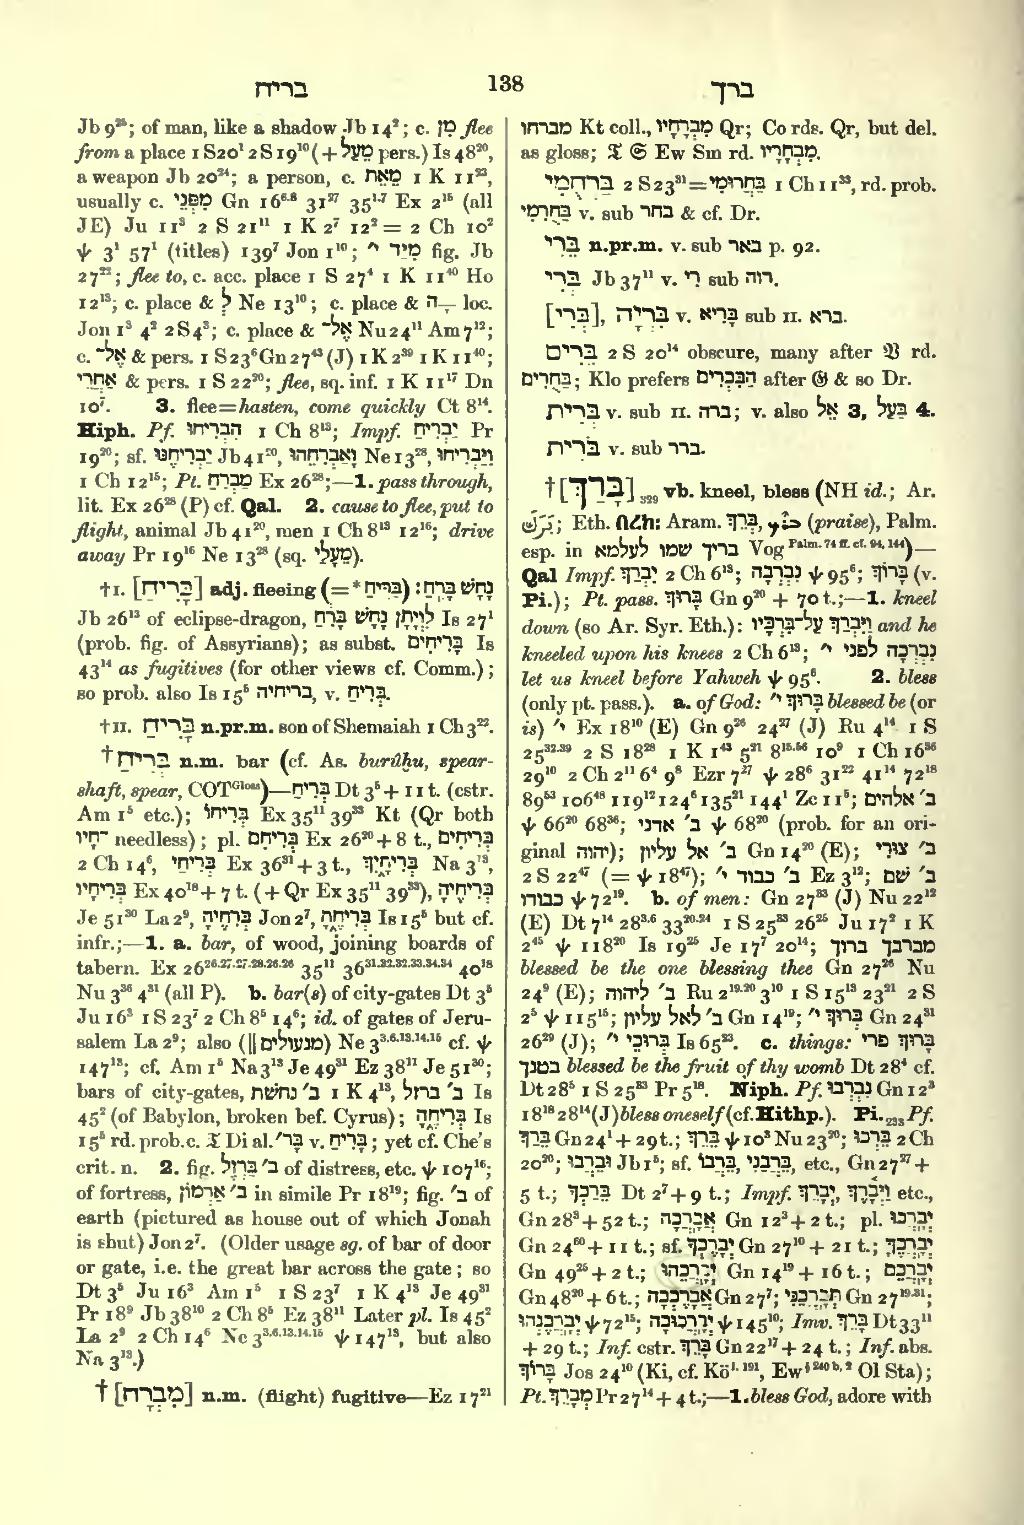 בריח
138
ברך
Jb 9²⁵; of man, like a shadow Jb 14²; c. מִן flee
from a place 1 S 20¹ 2 S 19¹⁰ (+ מֵעַל pers.) Is 48²⁰,
a weapon Jb 20²⁴; a person, c. מֵאֵת 1 K 11²³,
usually c. מִפְּנֵי Gn 16⁶·⁸ 31²⁷ 35¹·⁷ Ex 2¹⁵ (all
JE) Ju 11³ 2 S 21¹¹ 1 K 2⁷ 12² = 2 Ch 10²
ψ 3¹ 57¹ (titles) 139⁷ Jon 1¹⁰; מִיַּד י׳ fig. Jb
27²²; flee to, c. acc. place 1 S 27⁴ 1 K 11⁴⁰ Ho
12¹³; c. place & לְ Ne 13¹⁰; c. place & ־ָה loc.
Jon 1³ 4² 2 S 4³; c. place & אֶל־ Nu 24¹¹ Am 7¹²;
c. אֶל־ & pers. 1 S 23⁶ Gn 27⁴³ (J) 1 K 2³⁹ 1 K 11⁴⁰;
אַחֲרֵי & pers. 1 S 22²⁰; flee, sq. inf. 1 K 11¹⁷ Dn
10⁷. 3. flee=hasten, come quickly Ct 8¹⁴.
Hiph. Pf. הִבְרִיחוּ 1 Ch 8¹³; Impf. יַבְרִיחַ Pr
19²⁶; sf. יַבְרִיחֶנּוּ Jb 41²⁰, וָאַבְרִחֵהוּ Ne 13²⁸, וַיַּבְרִיחוּ
1 Ch 12¹⁵; Pt. מַבְרִחַ Ex 26²⁸;—1. pass through,
lit. Ex 26²⁸ (P) cf. Qal. 2. cause to flee, put to
flight, animal Jb 41²⁰, men 1 Ch 8¹³ 12¹⁶; drive
away Pr 19¹⁶ Ne 13²⁸ (sq. מֵעָלַי).
†I. [בָּרִיחַ] adj. fleeing (=*בָּרִּיחַ) נָחָשׁ בָּרִחַ:
Jb 26¹³ of eclipse-dragon, לִוְיָתָן נָחָשׁ בָּרִחַ Is 27¹
(prob. fig. of Assyrians); as subst. בָּרִיחִים Is
43¹⁴ as fugitives (for other views cf. Comm.);
so prob. also Is 15⁵ בריחיה, v. בְּרִיחַ.
†II. בָּרִיחַ n.pr.m. son of Shemaiah 1 Ch 3²².
†בְּרִיחַ n.m. bar (cf. As. burûḫu, spear-
shaft, spear, COT Gloss)—בְּרִיחַ Dt 3⁵ + 11 t. (cstr.
Am 1⁵ etc.); בְּרִיחוֹ Ex 35¹¹ 39³³ Kt (Qr both
־חָיו needless); pl. בְּרִיחִם Ex 26²⁶ + 8 t., בְּרִיחִים
2 Ch 14⁶, בְּרִיחֵי Ex 36³¹ + 3 t., בְּרִיחָיִךְ Na 3¹³,
בְּרִיחָיו Ex 40¹⁸ + 7 t. (+ Qr Ex 35¹¹ 39³³), בְּרִיחֶיהָ
Je 51³⁰ La 2⁹, בְּרִחֶיהָ Jon 2⁷, בְּרִיחֶהָ Is 15⁵ but cf.
infr.;—1. a. bar, of wood, joining boards of
tabern. Ex 26²⁶·²⁷·²⁷·²⁸·²⁶·²⁶ 35¹¹ 36³¹·³²·³²·³³·³⁴·³⁴ 40¹⁸
Nu 3³⁶ 4³¹ (all P). b. bar(s) of city-gates Dt 3⁵
Ju 16³ 1 S 23⁷ 2 Ch 8⁵ 14⁶; id. of gates of Jeru-
salem La 2⁹; also (‖ מנעולים) Ne 3³·⁶·¹³·¹⁴·¹⁵ cf. ψ
147¹³; cf. Am 1⁵ Na 3¹³ Je 49³¹ Ez 38¹¹ Je 51³⁰;
bars of city-gates, ב׳ נחשת 1 K 4¹³, ב׳ ברזל Is
45² (of Babylon, broken bef. Cyrus); בְּרִיחֶהָ Is
15⁵ rd. prob. c. 𝔗 Di al. בְּר׳ v. בָּרִיחַ; yet cf. Che's
crit. n. 2. fig. ב׳ בַּרְזֶל of distress, etc. ψ 107¹⁶;
of fortress, ב׳ אַרְמוֹן in simile Pr 18¹⁹; fig. ב׳ of
earth (pictured as house out of which Jonah
is shut) Jon 2⁷. (Older usage sg. of bar of door
or gate, i.e. the great bar across the gate; so
Dt 3⁵ Ju 16³ Am 1⁵ 1 S 23⁷ 1 K 4¹³ Je 49³¹
Pr 18⁹ Jb 38¹⁰ 2 Ch 8⁵ Ez 38¹¹ Later pl. Is 45²
La 2⁹ 2 Ch 14⁶ Ne 3³·⁶·¹³·¹⁴·¹⁵ ψ 147¹³, but also
Na 3¹³.)
†[מִבְרָח] n.m. (flight) fugitive—Ez 17²¹
מברחו Kt coll., מִבְרָחָיו Qr; Co rds. Qr, but del.
as gloss; 𝔗 𝔖 Ew Sm rd. מִבְחָרָיו.
בַּרְחֻמִי 2 S 23³¹ = בַּחֲרוּמִי 1 Ch 11³³, rd. prob.
בַּחֻרִמִי v. sub בחר & cf. Dr.
בֵּרִי n.pr.m. v. sub באר p. 92.
בְּרִי Jb 37¹¹ v. רִי sub רוה.
[בְּרִי], בְּרִיָּה v. בָּרִיא sub II. ברא.
בֵּרִים 2 S 20¹⁴ obscure, many after 𝔙 rd.
בַּחֻרִים; Klo prefers הַבִּכְרִים after 𝔊 & so Dr.
בְּרִית v. sub II. ברה; v. also אֵל 3, בַּעַל 4.
בֹּרִית v. sub ברר.
†[בָּרַךְ]₃₂₉ vb. kneel, bless (NH id.; Ar.
بَرَكَ; Eth. ባረከ: Aram. בְּרַךְ, ܒܪܟ (praise), Palm.
esp. in בריך שמו לעלמא Vog Palm. 74 ff. cf. 94, 144)—
Qal Impf. יִבְרַךְ 2 Ch 6¹³; נִבְרְכָה ψ 95⁶; בָּרוֹךְ (v.
Pi.); Pt. pass. בָּרוּךְ Gn 9²⁶ + 70 t.;—1. kneel
down (so Ar. Syr. Eth.): וַיִּבְרַךְ עַל־בִּרְכָּיו and he
kneeled upon his knees 2 Ch 6¹³; נִבְרְכָה לִפְנֵי י׳
let us kneel before Yahweh ψ 95⁶. 2. bless
(only pt. pass.). a. of God: בָּרוּךְ י׳ blessed be (or
is) י׳ Ex 18¹⁰ (E) Gn 9²⁶ 24²⁷ (J) Ru 4¹⁴ 1 S
25³²·³⁹ 2 S 18²⁸ 1 K 1⁴⁸ 5²¹ 8¹⁵·⁵⁶ 10⁹ 1 Ch 16³⁶
29¹⁰ 2 Ch 2¹¹ 6⁴ 9⁸ Ezr 7²⁷ ψ 28⁶ 31²² 41¹⁴ 72¹⁸
89⁵³ 106⁴⁸ 119¹² 124⁶ 135²¹ 144¹ Zc 11⁵; ב׳ אלהים
ψ 66²⁰ 68³⁶; ב׳ אדני ψ 68²⁰ (prob. for an ori-
ginal יהוה); ב׳ אל עליון Gn 14²⁰ (E); ב׳ צוּרִי
2 S 22⁴⁷ (= ψ 18⁴⁷); ב׳ כבוד י׳ Ez 3¹²; ב׳ שם
כבודו ψ 72¹⁹. b. of men: Gn 27³³ (J) Nu 22¹²
(E) Dt 7¹⁴ 28³·⁶ 33²⁰·²⁴ 1 S 25³³ 26²⁵ Ju 17² 1 K
2⁴⁵ ψ 118²⁶ Is 19²⁵ Je 17⁷ 20¹⁴; מברכך ברוך
blessed be the one blessing thee Gn 27²⁹ Nu
24⁹ (E); ב׳ ליהוה Ru 2¹⁹·²⁰ 3¹⁰ 1 S 15¹³ 23²¹ 2 S
2⁵ ψ 115¹⁵; ב׳ לאל עליון Gn 14¹⁹; בְּרוּךְ י׳ Gn 24³¹
26²⁹ (J); בְּרוּכֵי י׳ Is 65²³. c. things: בָּרוּךְ פרי
בטנך blessed be the fruit of thy womb Dt 28⁴ cf.
Dt 28⁵ 1 S 25³³ Pr 5¹⁸. Niph. Pf. נִבְרְכוּ Gn 12³
18¹⁸ 28¹⁴ (J) bless oneself (cf. Hithp.). Pi.₂₃₃ Pf.
בֵּרַךְ Gn 24¹ + 29 t.; בֵּרֵךְ ψ 10³ Nu 23²⁰; בֵּרְכוּ 2 Ch
20²⁶; וּבֵרְכוּ Jb 1⁵; sf. בֵּרְכַנִי, בֵּרְכוֹ, etc., Gn 27²⁷ +
5 t.; בֵּרַכְךָ Dt 2⁷ + 9 t.; Impf. יְבָרֵךְ, וַיְבָרֶךְ etc.,
Gn 28³ + 52 t.; אֲבָרְכָה Gn 12³ + 2 t.; pl. יְבָרְכוּ
Gn 24⁶⁰ + 11 t.; sf. יְבָרֶכְךָ Gn 27¹⁰ + 21 t.; יְבָרְכֶךָּ
Gn 49²⁵ + 2 t.; יְבָרְכֵהוּ Gn 14¹⁹ + 16 t.; יְבָרֶכְכֶם
Gn 48²⁰ + 6 t.; אֲבָרֶכְכָה Gn 27⁷; תְּבָרְכַנִּי Gn 27¹⁹·³¹;
יְבָרְכֶנְהוּ ψ 72¹⁵; יְבָרְכוּכָה ψ 145¹⁰; Imv. בָּרֵךְ Dt 33¹¹
+ 29 t.; Inf. cstr. בָּרֵךְ Gn 22¹⁷ + 24 t.; Inf. abs.
בָּרוֹךְ Jos 24¹⁰ (Ki, cf. Köⁱ· ¹⁹¹, Ew§ 240 b, 2 Ol Sta);
Pt. מְבָרֵךְ Pr 27¹⁴ + 4 t.;—1. bless God, adore with